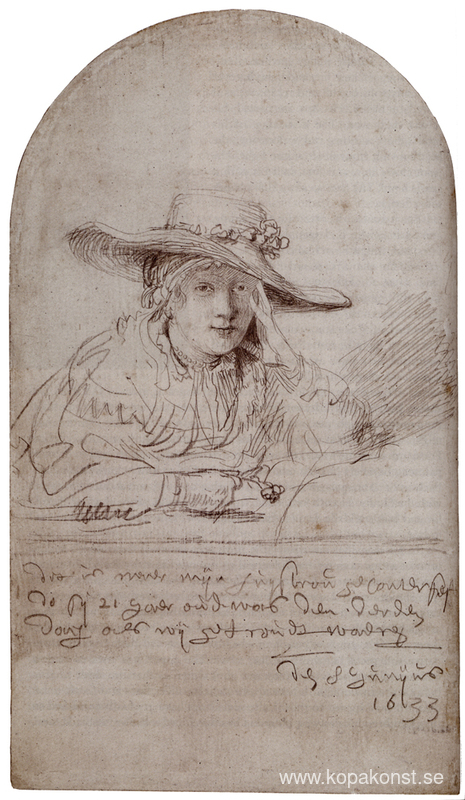 dit is naer mijn huysvrou geconterfeit
do sij 21 jaer oud was den derden
dach als wij getroudt waeren
den 8 junijus
1633
www.kopakonst.se